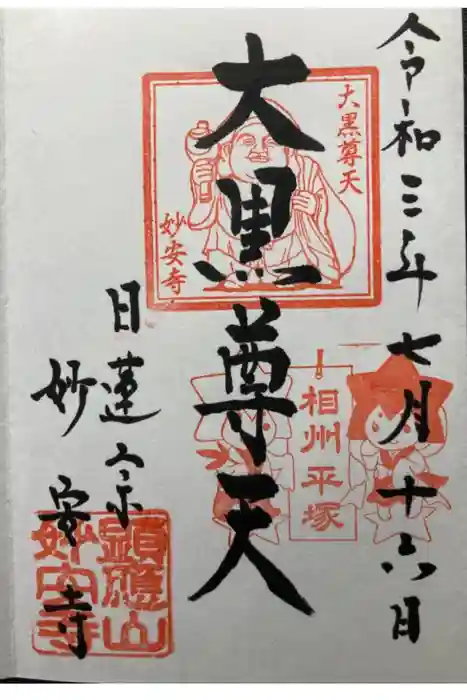 令和三年七月十六日
大黒尊天
大黒尊天
妙安寺
相州平塚
日蓮宗
妙安寺
顕應山
妙安寺